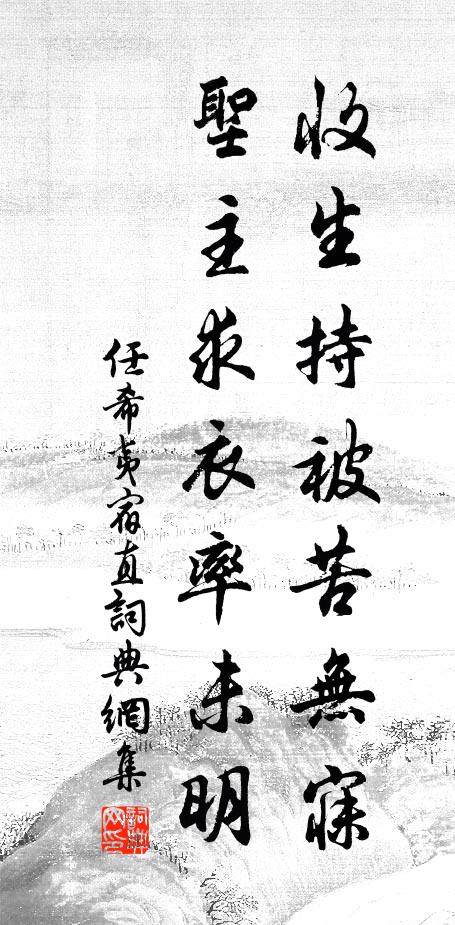 收生持被苦無寐
聖主求衣率未明
任希夷宿直詞典網集